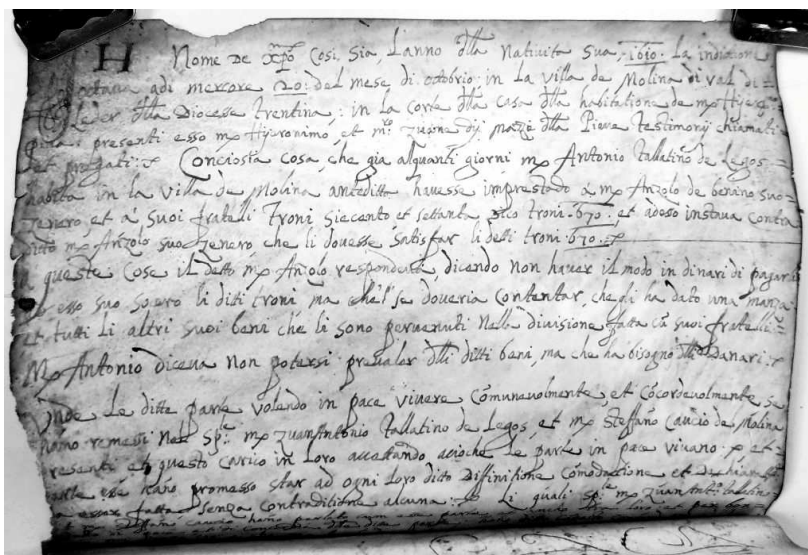 Nome De Xpo Cosi Sia, L'anno dlla Natiuita Sua .1610. La inditione
octaua adi mercore 20: del mese di ottobrio: in La Villa de Molina di Val di
Leder dlla Diocese trentina: in la corte dlla Casa dlla habitatione de mp Hyer
presenti esso mp Hyeronimo, et mr Zuane dlla Pieve testimonij chiamati
et pregati: Conciosia cosa, che gia alquanti giorni mp Antonio tallatino de Legos
habita in la Villa de Molina anteditto hauesse imprestado a mp Anzolo de benino suo
Zenero et a suoi fratelli troni siecento et settanta dico troni .670. et adeso instaua Contra
ditto mp Anzolo suo Zenero che li douesse satisfar li detti troni .670.
a queste Cose il detto mp Anzolo respondeua, dicendo non hauer il modo in dinari di pagar
esso suo socero li ditti troni ma che'l se doueria Contentar, che gli ha dato una manza
et tutti li altri suoi beni che li sono peruenuti nella diuisione fatta cu suoi fratelli
Mp Antonio diceua non potersi preualer dlli ditti beni, ma che ha bisogno dlli Danari.
Onde Le ditte parte volendo in pace viuere Comunauolmente, et Cocordeuolmente se
hano remessi nell sp. mp ZuanAntonio tallatino de Legos et mp Steffano Caucio de Molina
presenti et questo carico in Loro accettando accioche Le parte in pace viuano: et
parte hano promesso star ad ogni Loro ditto Diffinitione Comodatione et
esser fatta senza Contraditione alcuna: Li quali sp. mp ZuanAnt. tallatino